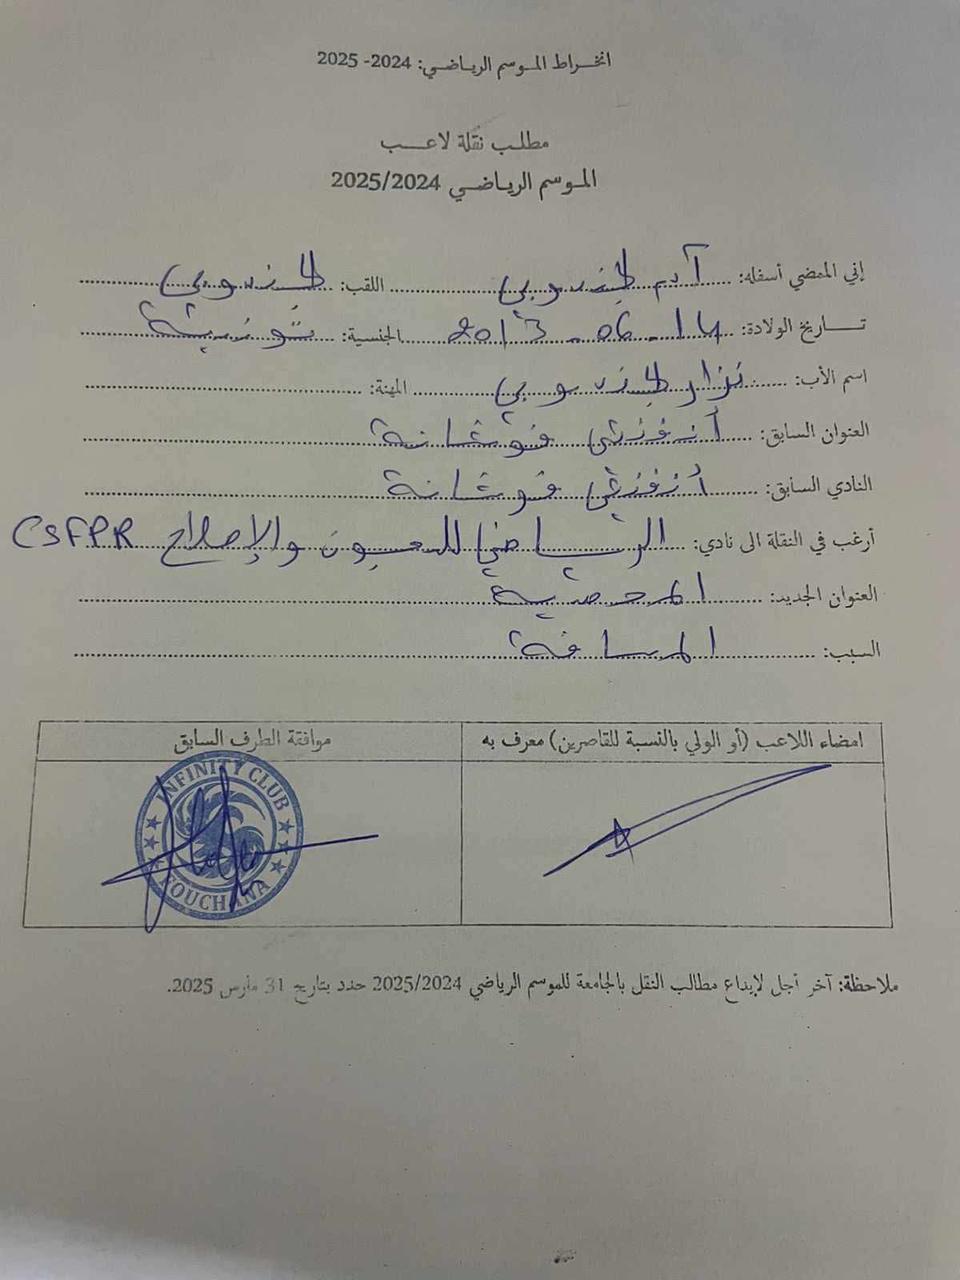 انخراط الموسم الرياضي: 2024- 2025
مطلب نقلة لاعب
الموسم الرياضي 2025/2024
إني الممضي أسفله: آدم طنبوبي اللقب: طنبوبي
تاريخ الولادة: 14 - 06 - 2013 الجنسية: تونسية
اسم الأب: نزار طنبوبي المهنة:
العنوان السابق: فوشانة
النادي السابق: فوشانة
أرغب في النقلة الى نادي: الرياضي للسجون والإصلاح CSFPR
العنوان الجديد: المحمدية
السبب: المسافة
امضاء اللاعب (أو الولي بالنسبة للقاصرين) معرف به
موافقة الطرف السابق
INFINITY CLUB
FOUCHANA
ملاحظة: آخر أجل لإيداع مطالب النقل بالجامعة للموسم الرياضي 2025/2024 حدد بتاريخ 31 مارس 2025.